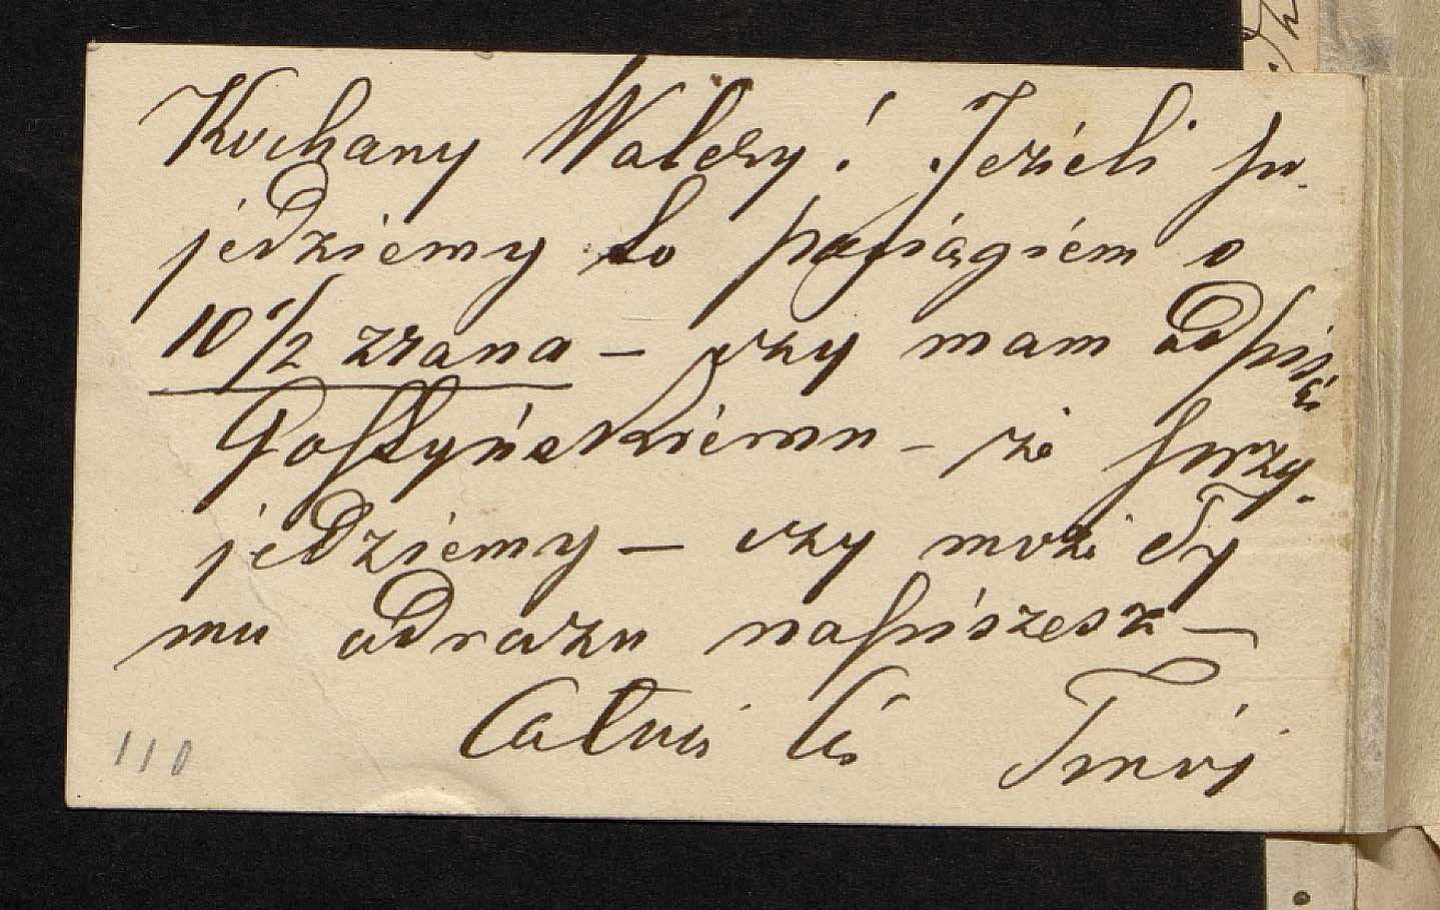 Kochany Walery! Jeżeli po-
jedziemy to pociągiem o
10 1/2 zrana – czy mam odpisać
Gostyńskiemu – że przy-
jedziemy – czy może Ty
mu odrazu napiszesz –
Całuję Cię Twój
110